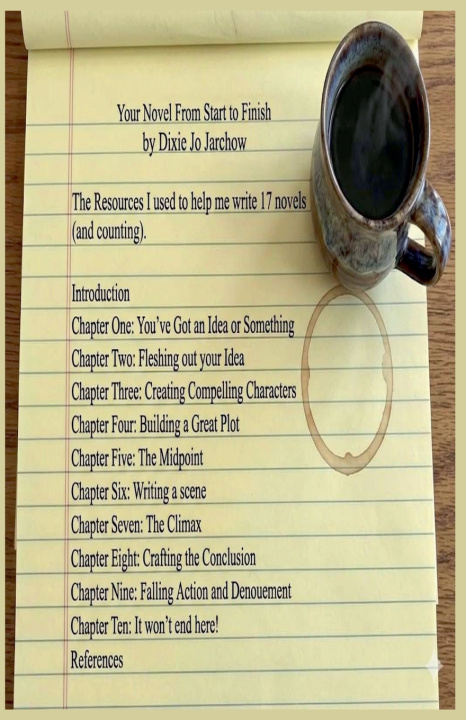 Your Novel From Start to Finish
by Dixie Jo Jarchow
The Resources I used to help me write 17 novels
(and counting).
Introduction
Chapter One: You've Got an Idea or Something
Chapter Two: Fleshing out your Idea
Chapter Three: Creating Compelling Characters
Chapter Four: Building a Great Plot
Chapter Five: The Midpoint
Chapter Six: Writing a scene
Chapter Seven: The Climax
Chapter Eight: Crafting the Conclusion
Chapter Nine: Falling Action and Denouement
Chapter Ten: It won't end here!
References